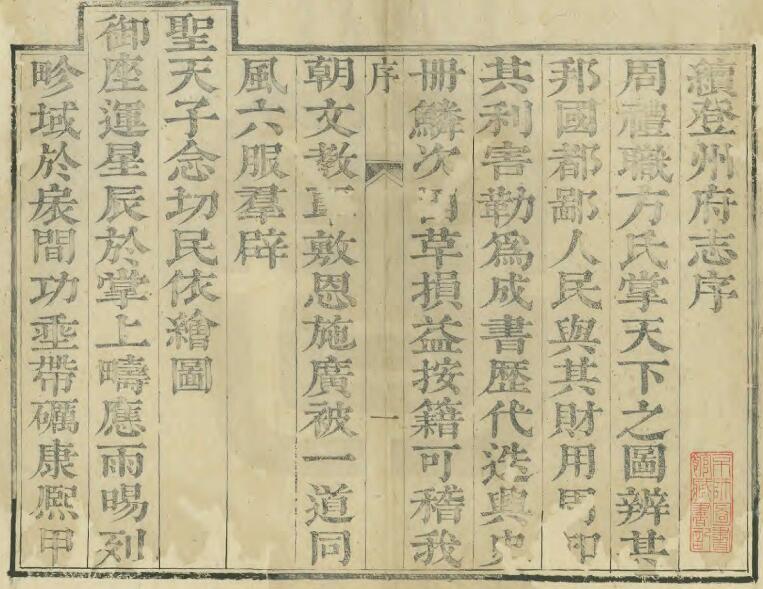 續登州府志序
周禮職方氏掌天下之圖辨其
邦國都鄙人民與其財用周知
其利害勒爲成書歷代迭興史
冊鱗次因革損益按籍可稽我
序 一
朝文教覃敷恩施廣被一道同
風六服羣辟
聖天子念切民依繪圖
御座運星辰於掌上疇應雨暘列
畛域於扆間功垂帶礪康熙甲